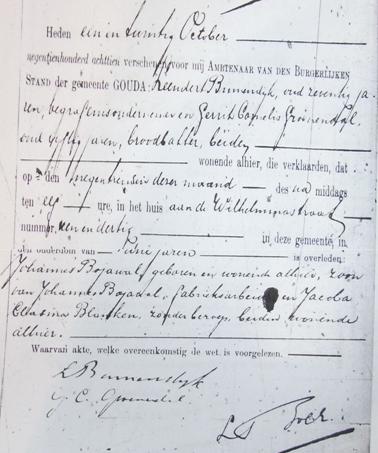 Heden een en twintig October
negentienhonderd achttien verscheen voor mij Ambtenaar van den Burgerlijken
Stand der gemeente GOUDA: Leendert oud zeventig ja-
ren, begrafenisondernemer en Gerrit Cornelis Groenendal,
oud vijftig jaren, broodbakker, beiden
wonende alhier, die verklaarden, dat
op den negentienden dezer maand des na middags
ten elf ure, in het huis aan de Wilhelminastraat
nummer een en dertig in deze gemeente, in
den ouderdom van jaren is overleden
Johannes geboren en wonende alhier, zoon
van Johannes fabrieksarbeider en Jacoba
zonder beroep, beiden wonende
alhier.
Waarvan akte, welke overeenkomstig de wet is voorgelezen.